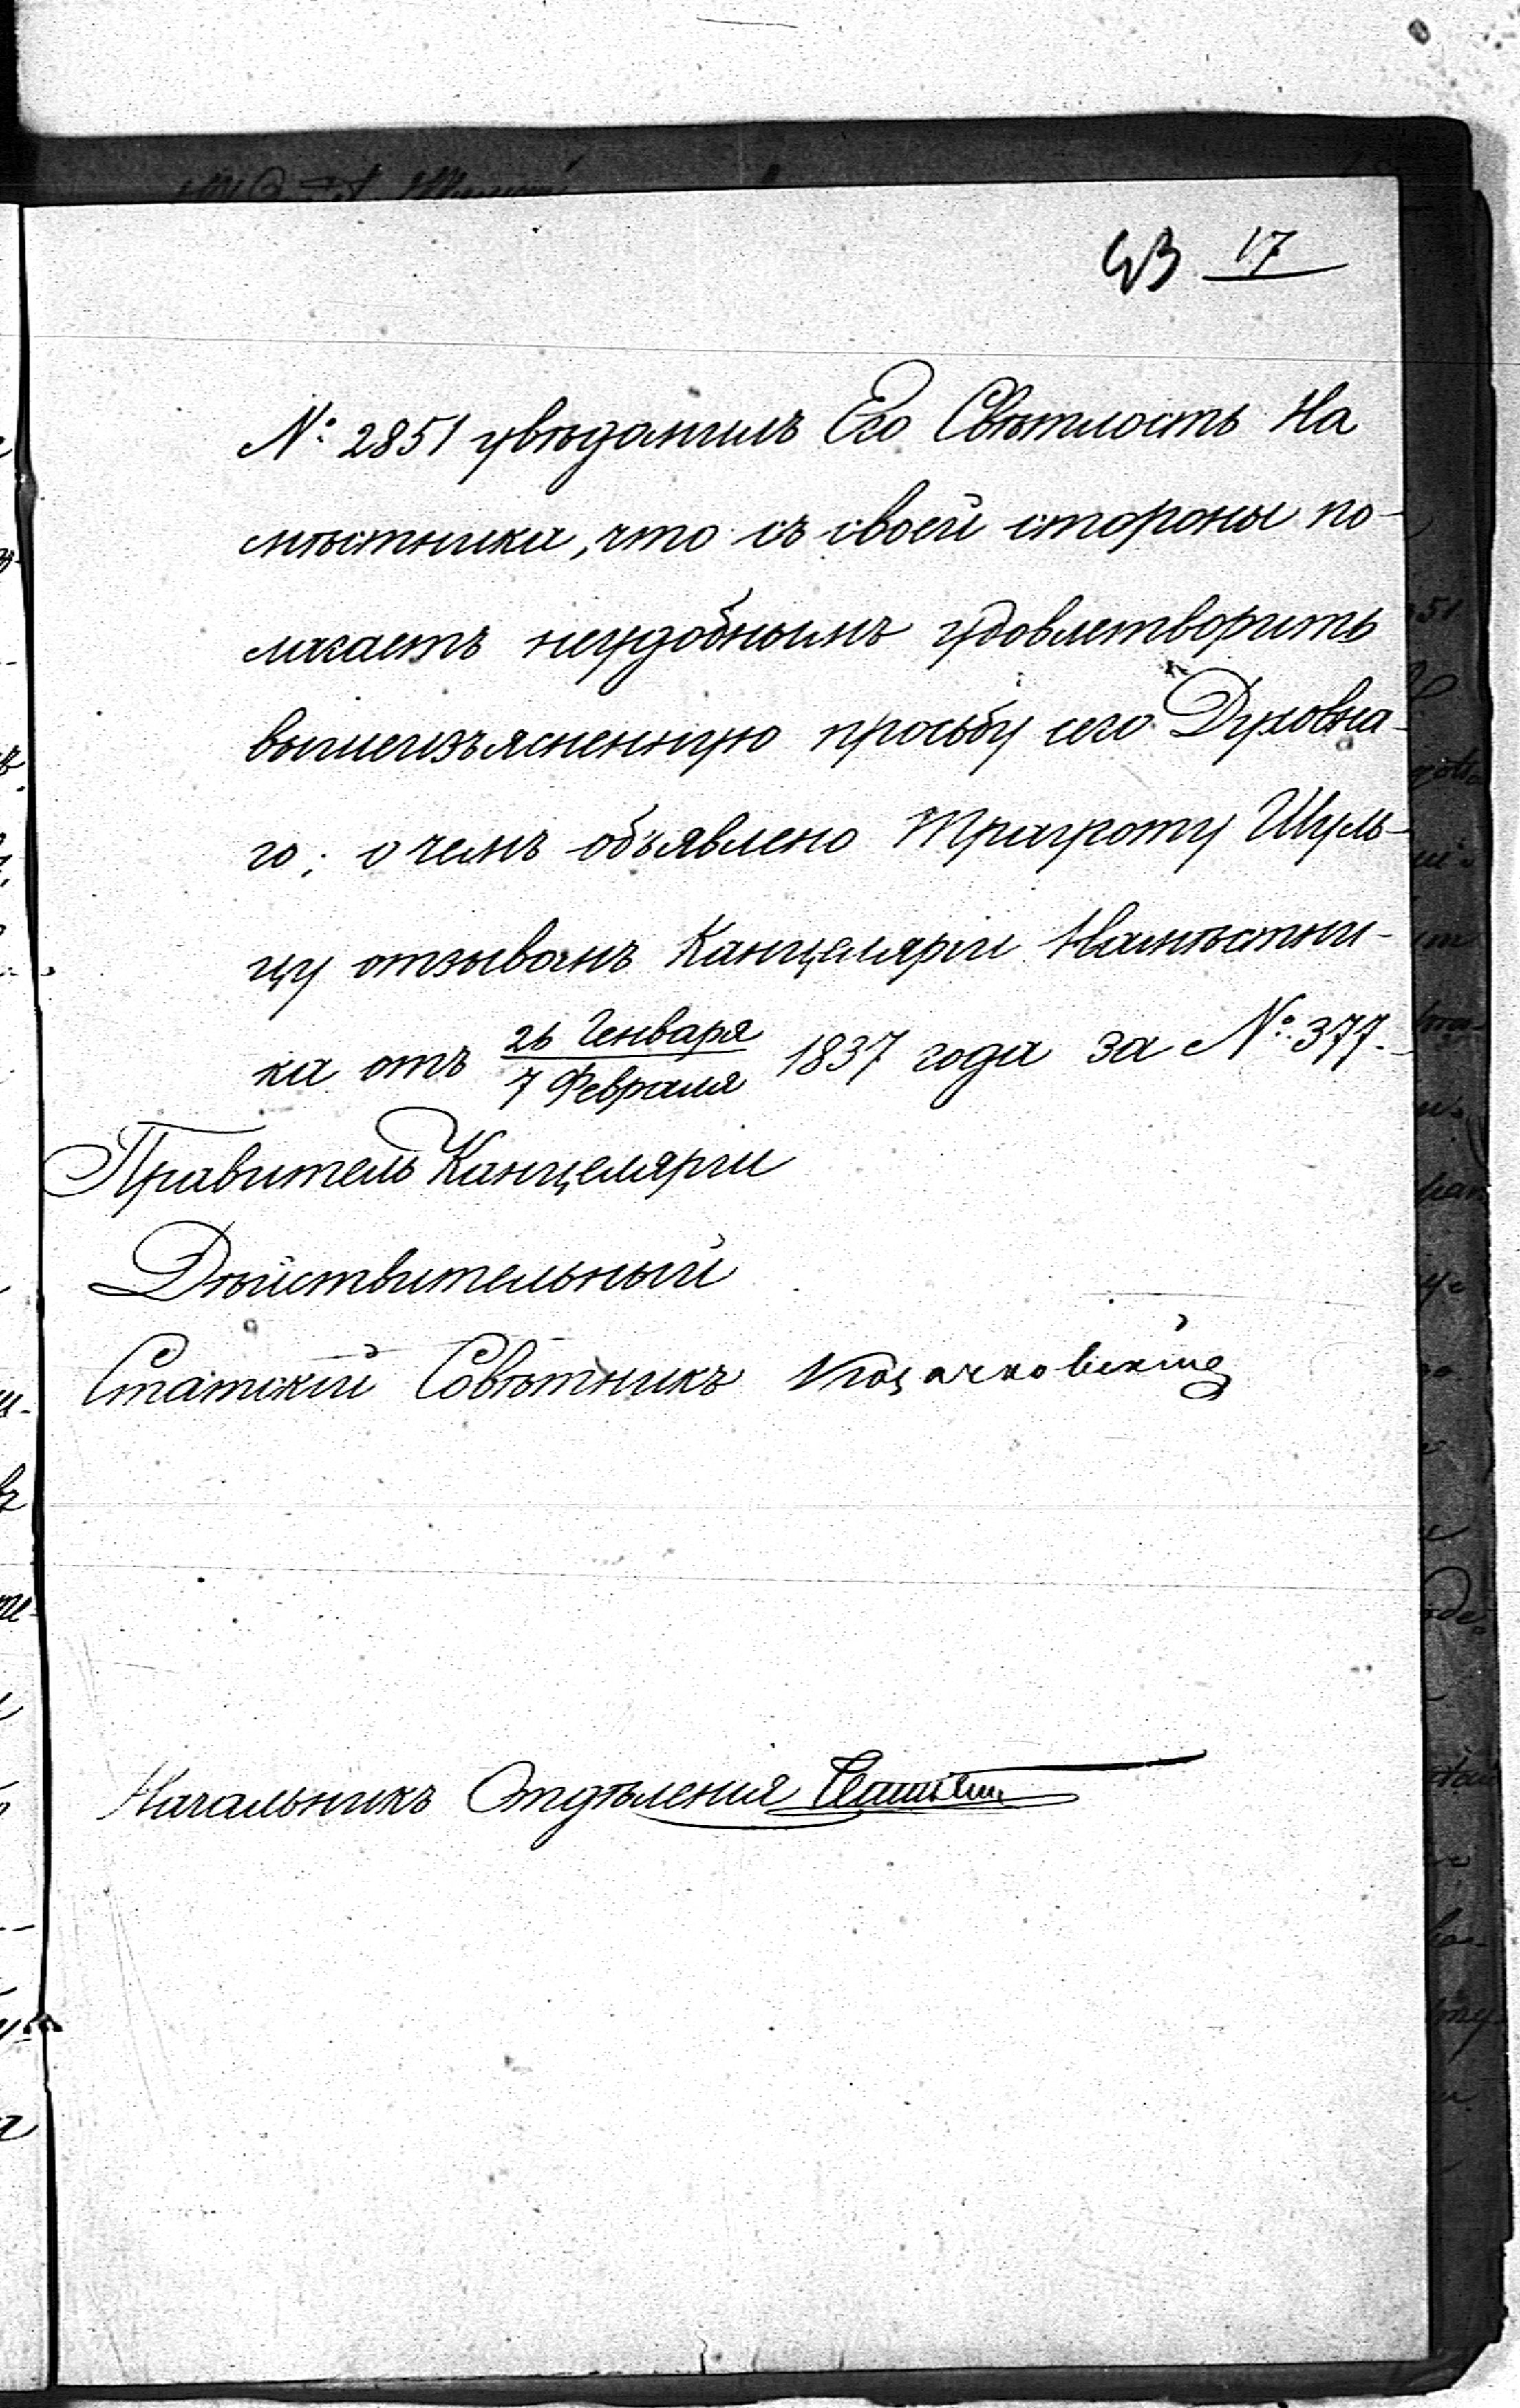 43 17
№ 2851 увѣдомилъ Его Свѣтлость На
мѣстника, что съ своей стороны по-
лагаетъ неудобнымъ удовлетворить
вышеизъясненную просьбу сего Духовна-
го; о чемъ объявлено Трауготу Шуль-
цу отзывомъ Канцеляріи Намѣстни-
ка отъ 26 Генваря / 7 Февраля 1837 года за № 377.
Правитель Канцеляріи
Дѣйствительный
Статскій Совѣтникъ Козачковскій
Начальникъ Отдѣленія